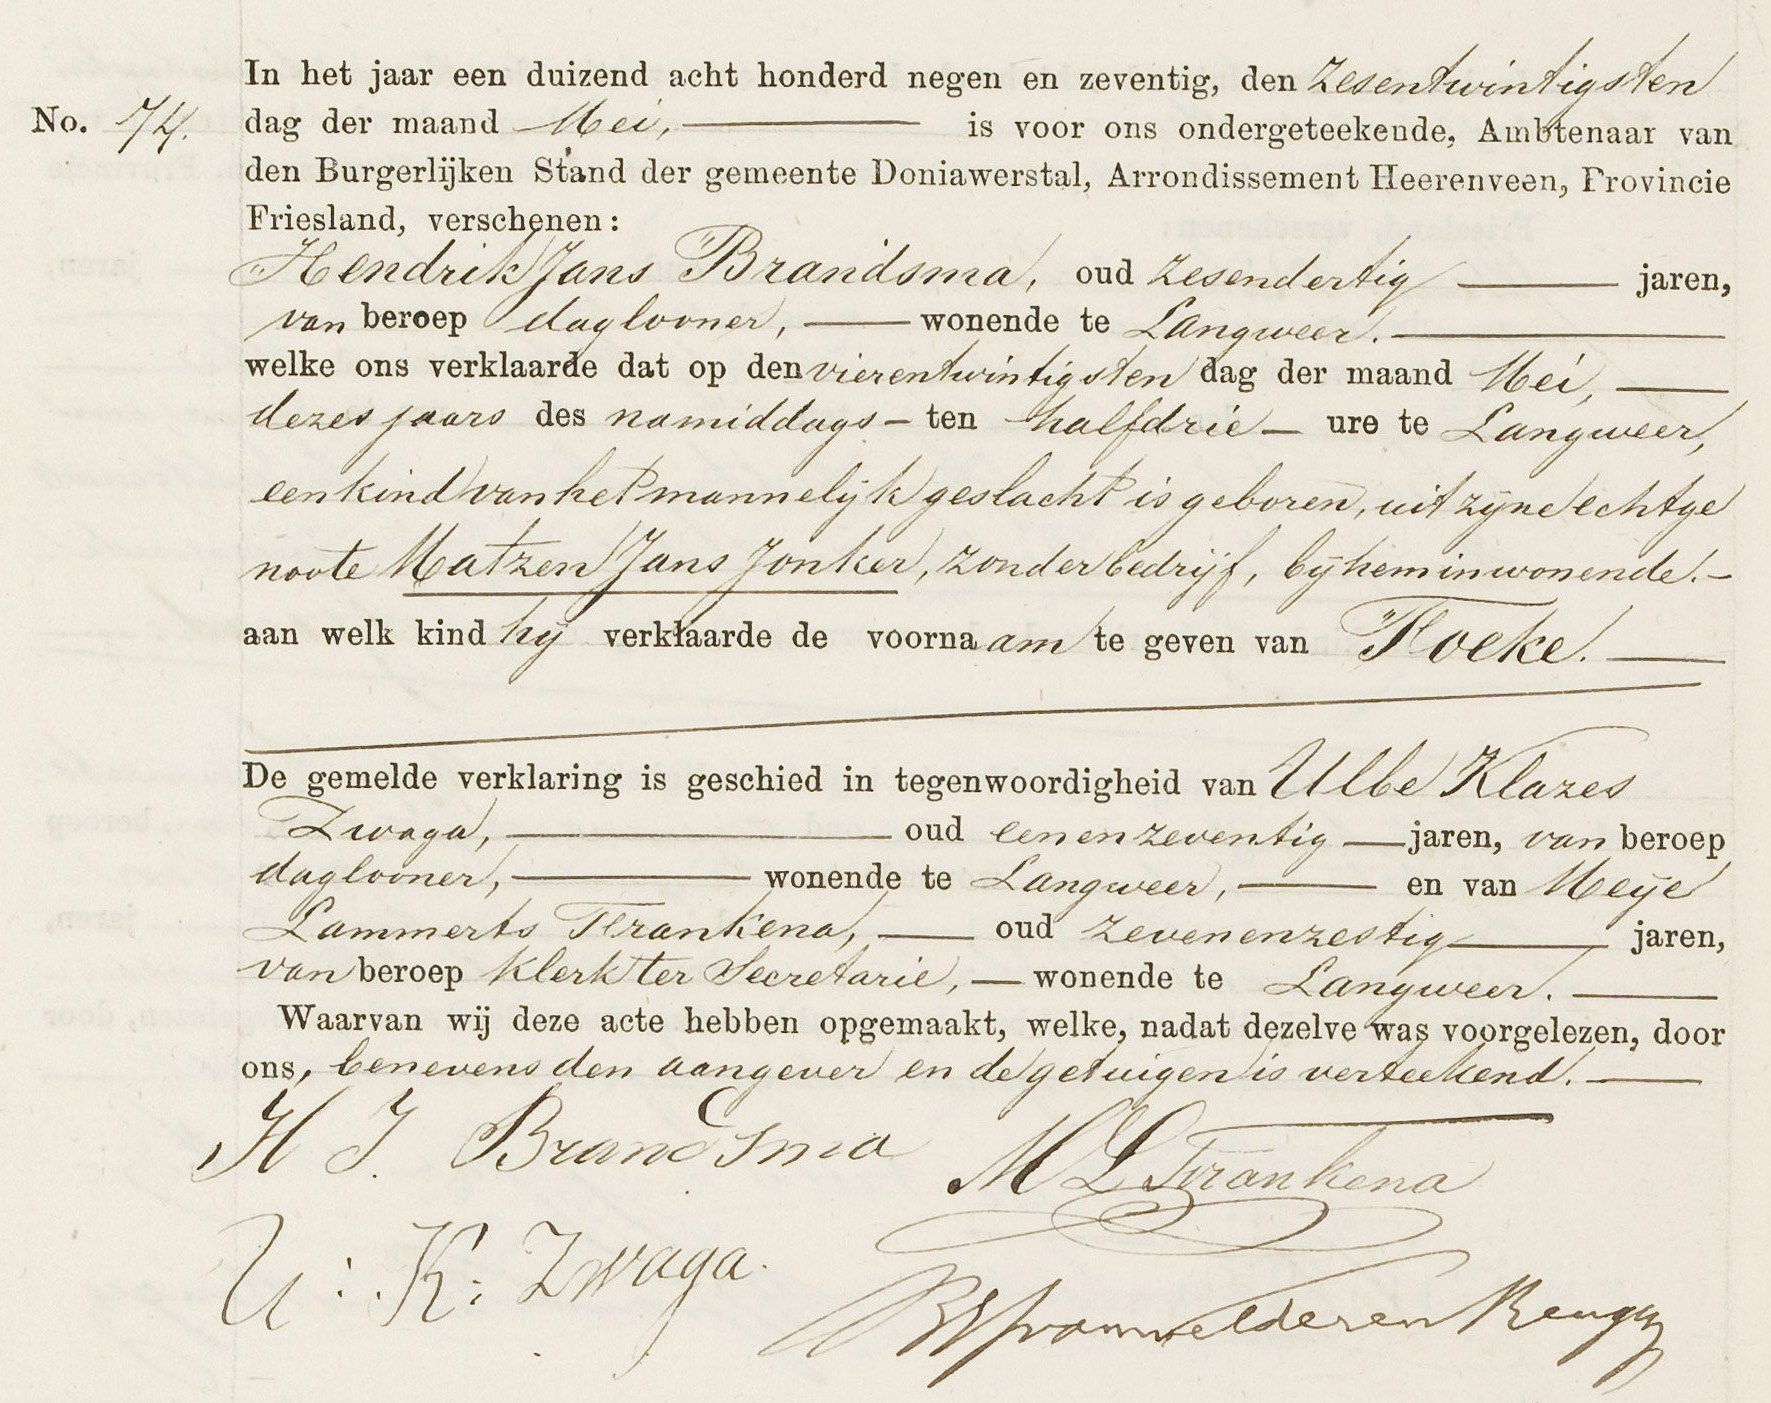 In het jaar een duizend acht honderd negen en zeventig, den zesentwintigsten
No. 74. dag der maand Mei, is voor ons ondergeteekende, Ambtenaar van
den Burgerlijken Stand der gemeente Doniawerstal, Arrondissement Heerenveen, Provincie
Friesland, verschenen:
Hendrik Jans Brandsma, oud zesendertig jaren,
van beroep daglooner, wonende te Langweer.
welke ons verklaarde dat op den vierentwintigsten dag der maand Mei,
dezes jaars des namiddags ten halfdrie ure te Langweer,
een kind van het mannelijk geslacht is geboren, uit zijne echtge
noote Matzen Jans Jonker, zonder bedrijf, bij hem inwonende.
aan welk kind hij verklaarde de voornaam te geven van Foeke.
De gemelde verklaring is geschied in tegenwoordigheid van Ulbe Klazes
Zwaga, oud eenenzeventig jaren, van beroep
daglooner, wonende te Langweer, en van Meije
Lammerts Frankena, oud zevenenzestig jaren,
van beroep klerk ter Secretarie, wonende te Langweer.
Waarvan wij deze acte hebben opgemaakt, welke, nadat dezelve was voorgelezen, door
ons, benevens den aangever en de getuigen is verteekend.
H J Brandsma M L Frankena
U: K: Zwaga.